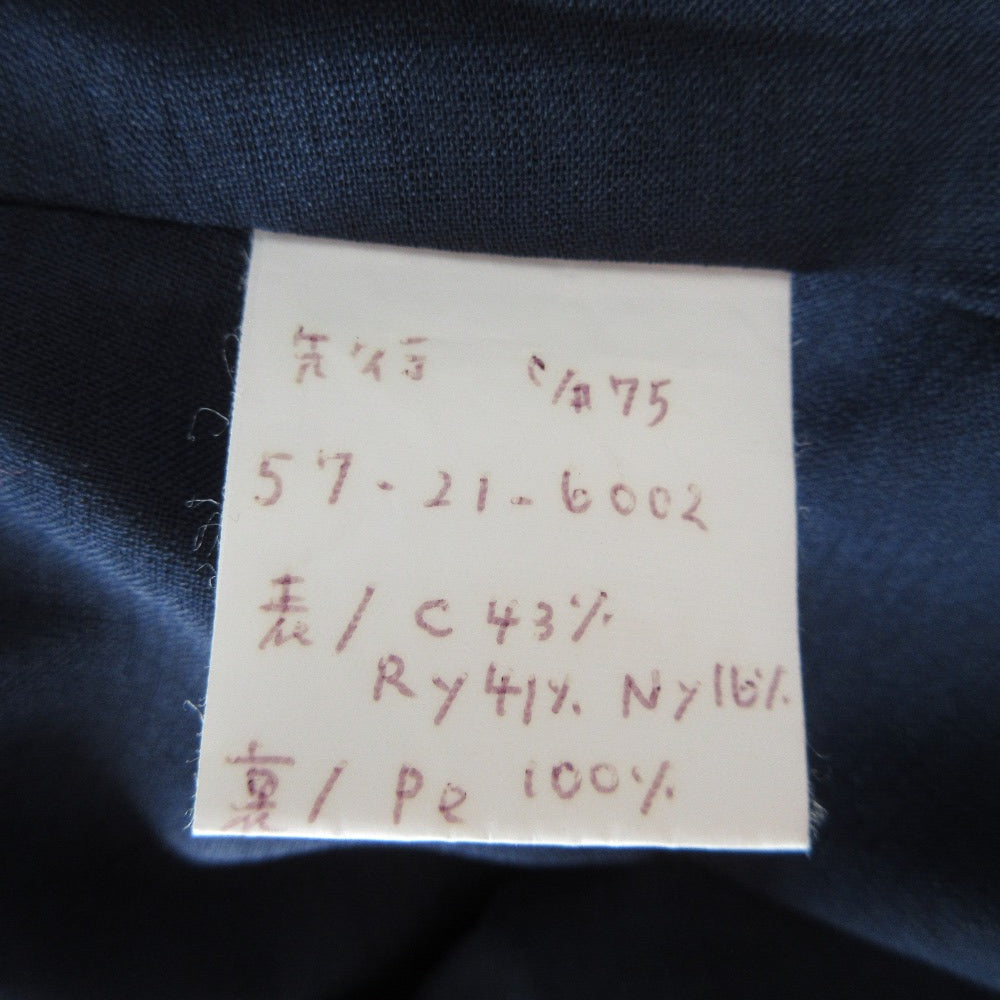 75
57-21-6002
表/ C 43%
Ry 41% Ny 16%
裏/ Pe 100%